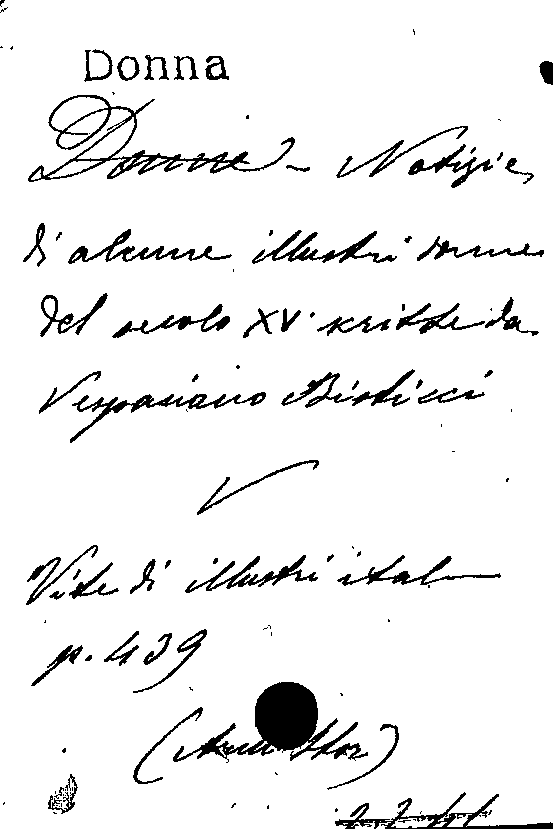 Donna
Donne - Notizie
di alcune illustri donne
del secolo XV. scritte da
Vespasiano Bisticci
V
Vite di illustri ital
p. 439
(Stor)
2.2.41